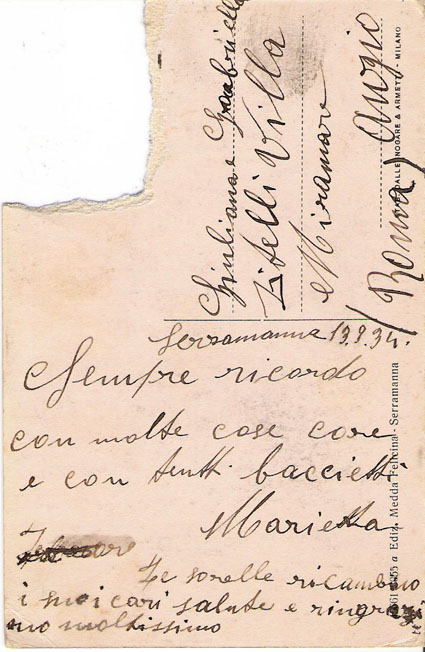 Giuliana e Gabriella
Zitelli Villa
Miramare
Anzio
(Roma)
DALLE NOGARE & ARMETTI - MILANO
Serramanna 13.9.34.
Sempre ricordo
con molte cose care
e con tutti baccietti
Marietta
Le sorelle ricambino
i suoi cari saluti e ringrazi
no moltissimo
Ediz. Medda Felicina - Serramanna